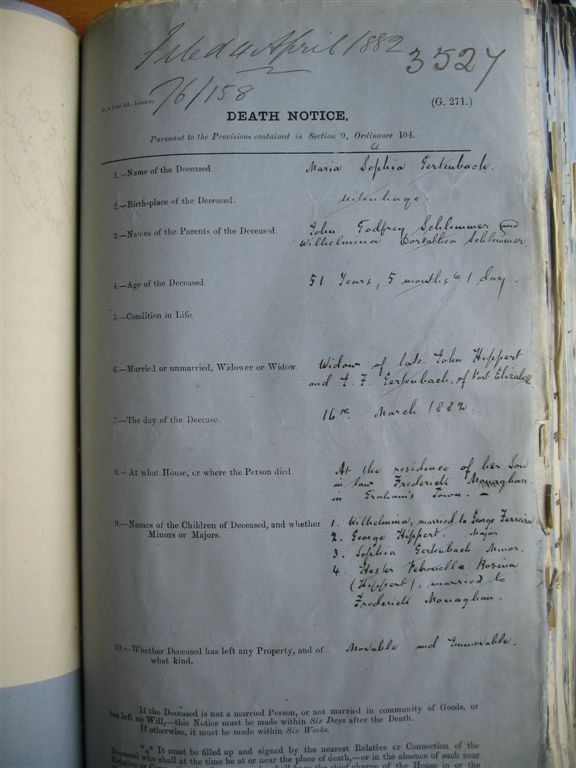 Filed 4 April 1882
3527
7/6/158
(G. 271.)
DEATH NOTICE,
Pursuant to the Provisions contained in Section 9, Ordinance 104.
1.—Name of the Deceased Maria Sophia Gertenbach.
2.—Birth-place of the Deceased. Uitenhage.
3.—Names of the Parents of the Deceased. John Godfrey Schlemmer and
Wilhelmina Schlemmer
4.—Age of the Deceased 51 Years, 5 months & 1 day.
5.—Condition in Life.
6.—Married or unmarried, Widower or Widow. Widow of late John Hippert
and Gertenbach, of Port Elizabeth
7.—The day of the Decease. 16th March 1882
8.—At what House, or where the Person died. At the residence of her Son
in law Frederick Monaghan.
in Graham's Town.—
9.—Names of the Children of Deceased, and whether 1. Wilhelmina, married to George Ferreira
Minors or Majors. 2. George Hippert. Major
3. Sophia Gertenbach Minor.
4. Hester Rosina
(Hippert), married to
Frederick Monaghan.
10—Whether Deceased has left any Property, and of Movable and Immovable.
what kind.
If the Deceased is not a married Person, or not married in community of Goods, or
has left no Will,—this Notice must be made within Six Days after the Death.
If otherwise, it must be made within Six Weeks.
*** It must be filled up and signed by the nearest Relative or Connection of the
Deceased who shall at the time be at or near the place of death,—or in the absence of such near
Relative or shall have the chief charge of the House in or the